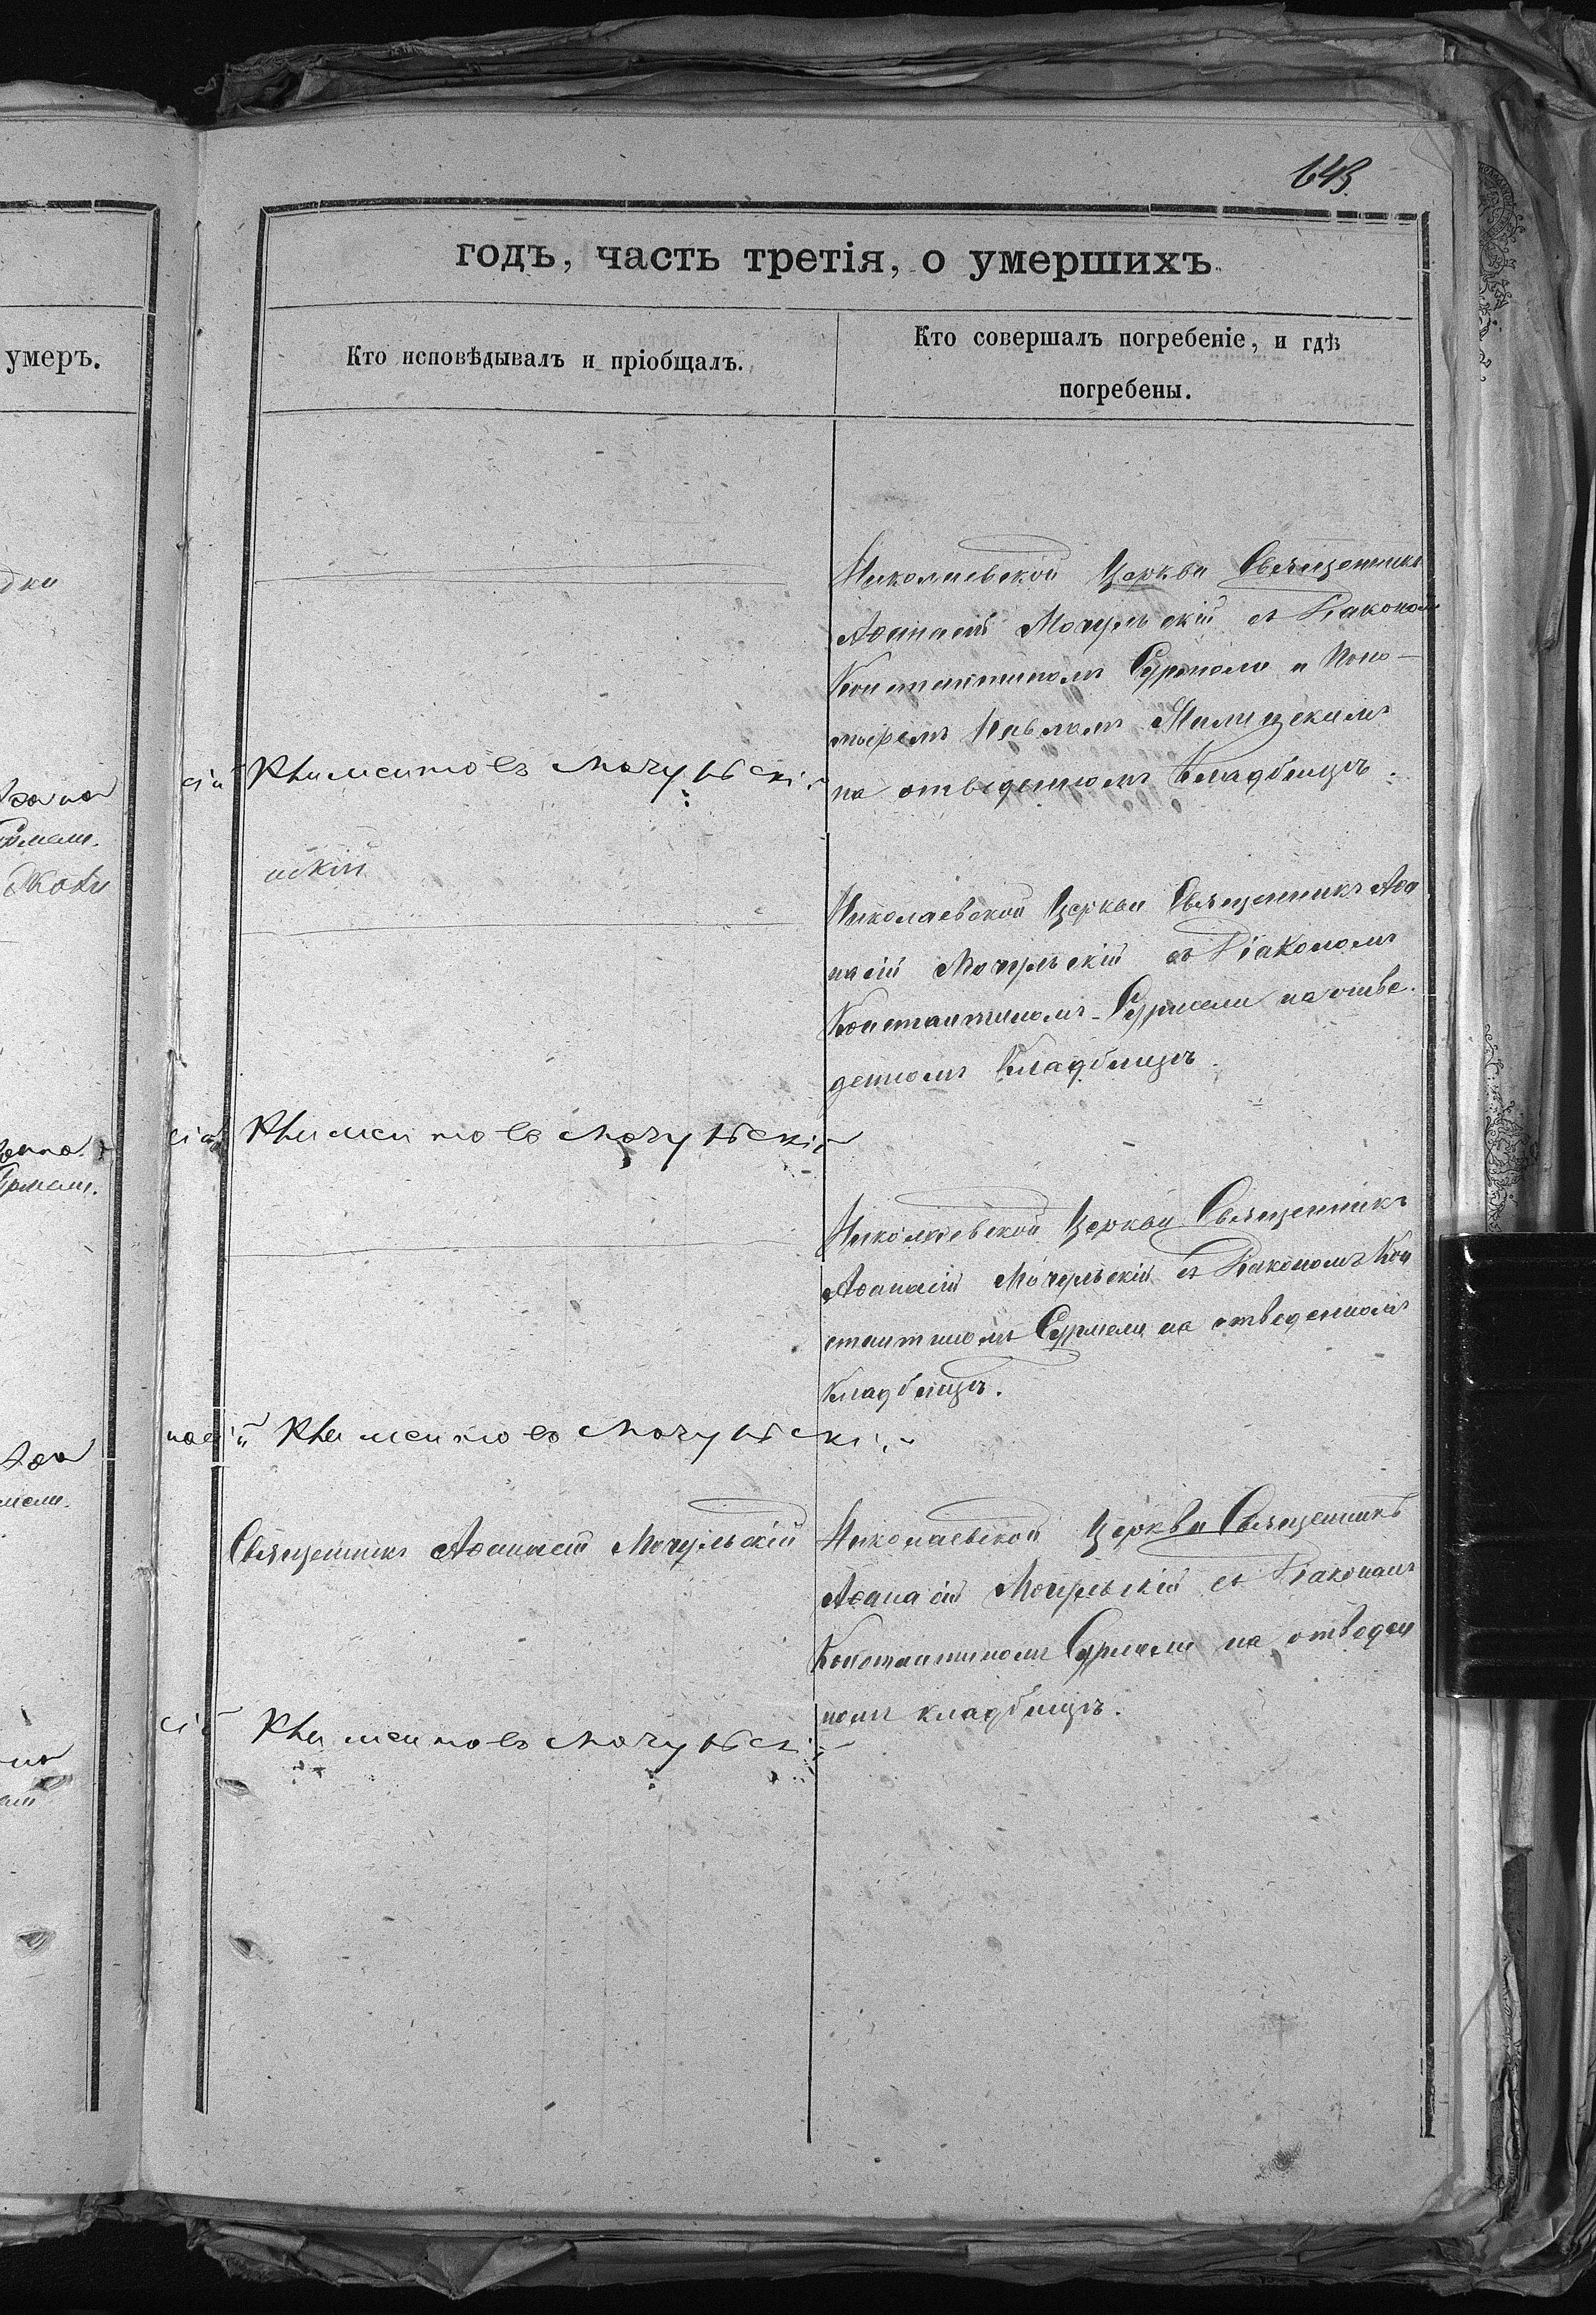 643.
годъ, часть третія, о умершихъ
умеръ.
Кто исповѣдывалъ и пріобщалъ.
Кто совершалъ погребеніе, и гдѣ
погребены.
Николаевской Церкви Священникъ
Аѳанасій Мочульскій съ Діакономъ
Константиномъ Сурмели и Поно-
маремъ Павломъ
на отведенномъ Кладбищѣ.
сій Климентовъ Мочульскій
нскій
Николаевской Церкви Священникъ Аѳа
насій Мочульскій съ Діакономъ
Константиномъ Сурмели на отве-
денномъ Кладбищѣ.
сій Климентовъ Мочульскій
Николаевской Церкви Священникъ
Аѳанасій Мочульскій съ Діакономъ Кон
стантиномъ Сурмели на отведенномъ
Кладбищѣ.
насій Климентовъ Мочульскій
Священникъ Аѳанасій Мочульскій
Николаевской Церкви Священникъ
Аѳанасій Мочульскій съ Діакономъ
Константиномъ Сурмели на отведен
номъ кладбищѣ.
сій Климентовъ Мочульскій